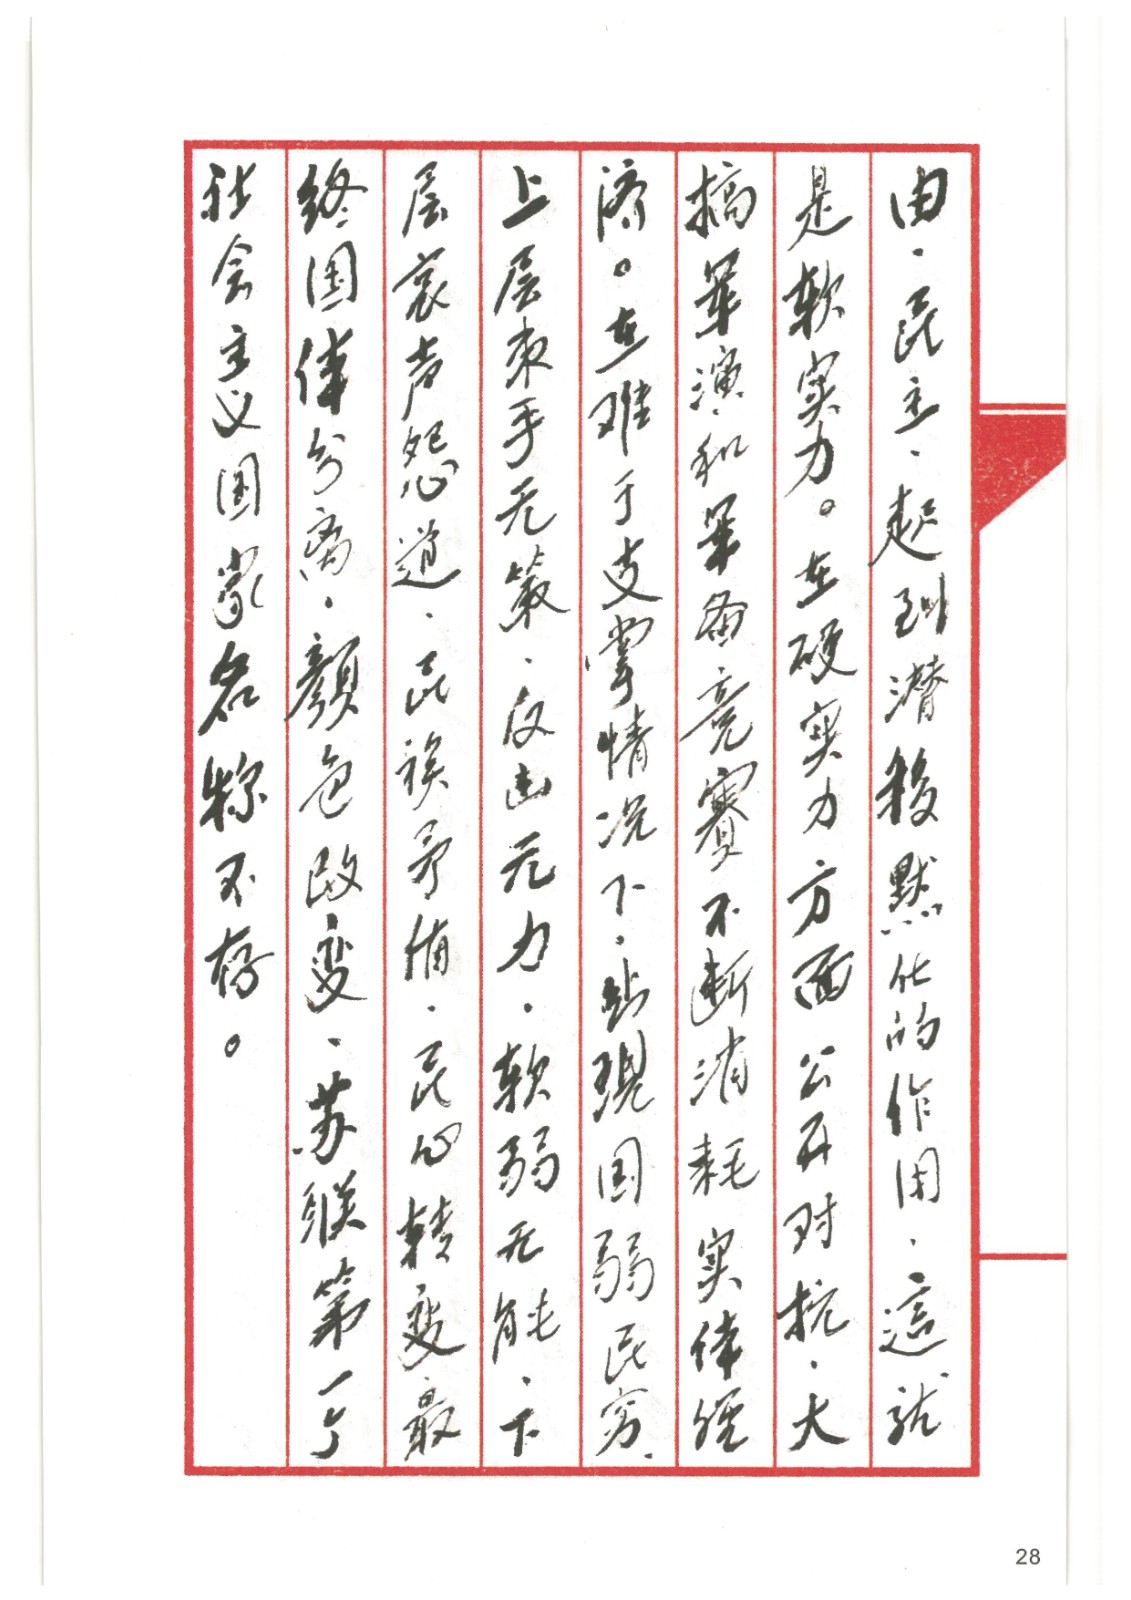 由、民主、起到潜移默化的作用、這就
是软实力。在硬实力方面公开对抗、大
搞军演和军备竞赛不断消耗实体经
济。在难于支掌情况下、出现国弱民穷、
上层束手无策、反击无力、软弱无能、下
层哀声怨道、民族矛盾、民心转变、最
终国体分离、颜色改变、苏联第一个
社会主义国家名称不存。
28